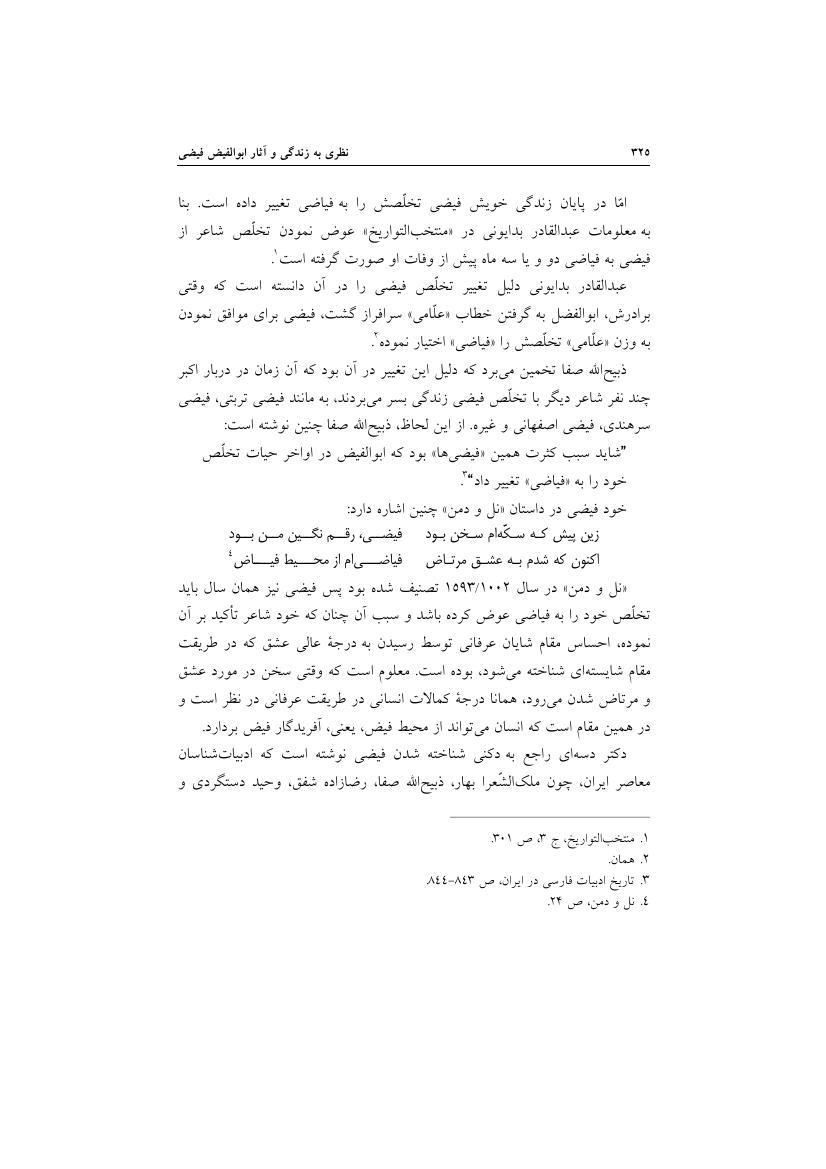 ۳۲۵ نظری به زندگی و آثار ابوالفیض فیضی
امّا در پایان زندگی خویش فیضی تخلّصش را به فیاضی تغییر داده است. بنا
به معلومات عبدالقادر بدایونی در «منتخب‌التواریخ» عوض نمودن تخلّص شاعر از
فیضی به فیاضی دو و یا سه ماه پیش از وفات او صورت گرفته است۱.
عبدالقادر بدایونی دلیل تغییر تخلّص فیضی را در آن دانسته است که وقتی
برادرش، ابوالفضل به گرفتن خطاب «علّامی» سرافراز گشت، فیضی برای موافق نمودن
به وزن «علّامی» تخلّصش را «فیاضی» اختیار نموده۲.
ذبیح‌الله صفا تخمین می‌برد که دلیل این تغییر در آن بود که آن زمان در دربار اکبر
چند نفر شاعر دیگر با تخلّص فیضی زندگی بسر می‌بردند، به مانند فیضی تربتی، فیضی
سرهندی، فیضی اصفهانی و غیره. از این لحاظ، ذبیح‌الله صفا چنین نوشته است:
”شاید سبب کثرت همین «فیضی‌ها» بود که ابوالفیض در اواخر حیات تخلّص
خود را به «فیاضی» تغییر داد“۳.
خود فیضی در داستان «نل و دمن» چنین اشاره دارد:
زین پیش کـه سـکّه‌ام سـخن بـود فیضــی، رقــم نگــین مــن بــود
اکنون که شدم بـه عشـق مرتـاض فیاضــی‌ام از محــیط فیــاض۴
«نل و دمن» در سال ۱۵۹۳/۱۰۰۲ تصنیف شده بود پس فیضی نیز همان سال باید
تخلّص خود را به فیاضی عوض کرده باشد و سبب آن چنان که خود شاعر تأکید بر آن
نموده، احساس مقام شایان عرفانی توسط رسیدن به درجۀ عالی عشق که در طریقت
مقام شایسته‌ای شناخته می‌شود، بوده است. معلوم است که وقتی سخن در مورد عشق
و مرتاض شدن می‌رود، همانا درجۀ کمالات انسانی در طریقت عرفانی در نظر است و
در همین مقام است که انسان می‌تواند از محیط فیض، یعنی، آفریدگار فیض بردارد.
دکتر دسه‌ای راجع به دکنی شناخته شدن فیضی نوشته است که ادبیات‌شناسان
معاصر ایران، چون ملک‌الشّعرا بهار، ذبیح‌الله صفا، رضازاده شفق، وحید دستگردی و
۱. منتخب‌التواریخ، ج ۳، ص ۳۰۱.
۲. همان.
۳. تاریخ ادبیات فارسی در ایران، ص ۸۴۳-۸۴۴.
۴. نل و دمن، ص ۲۴.